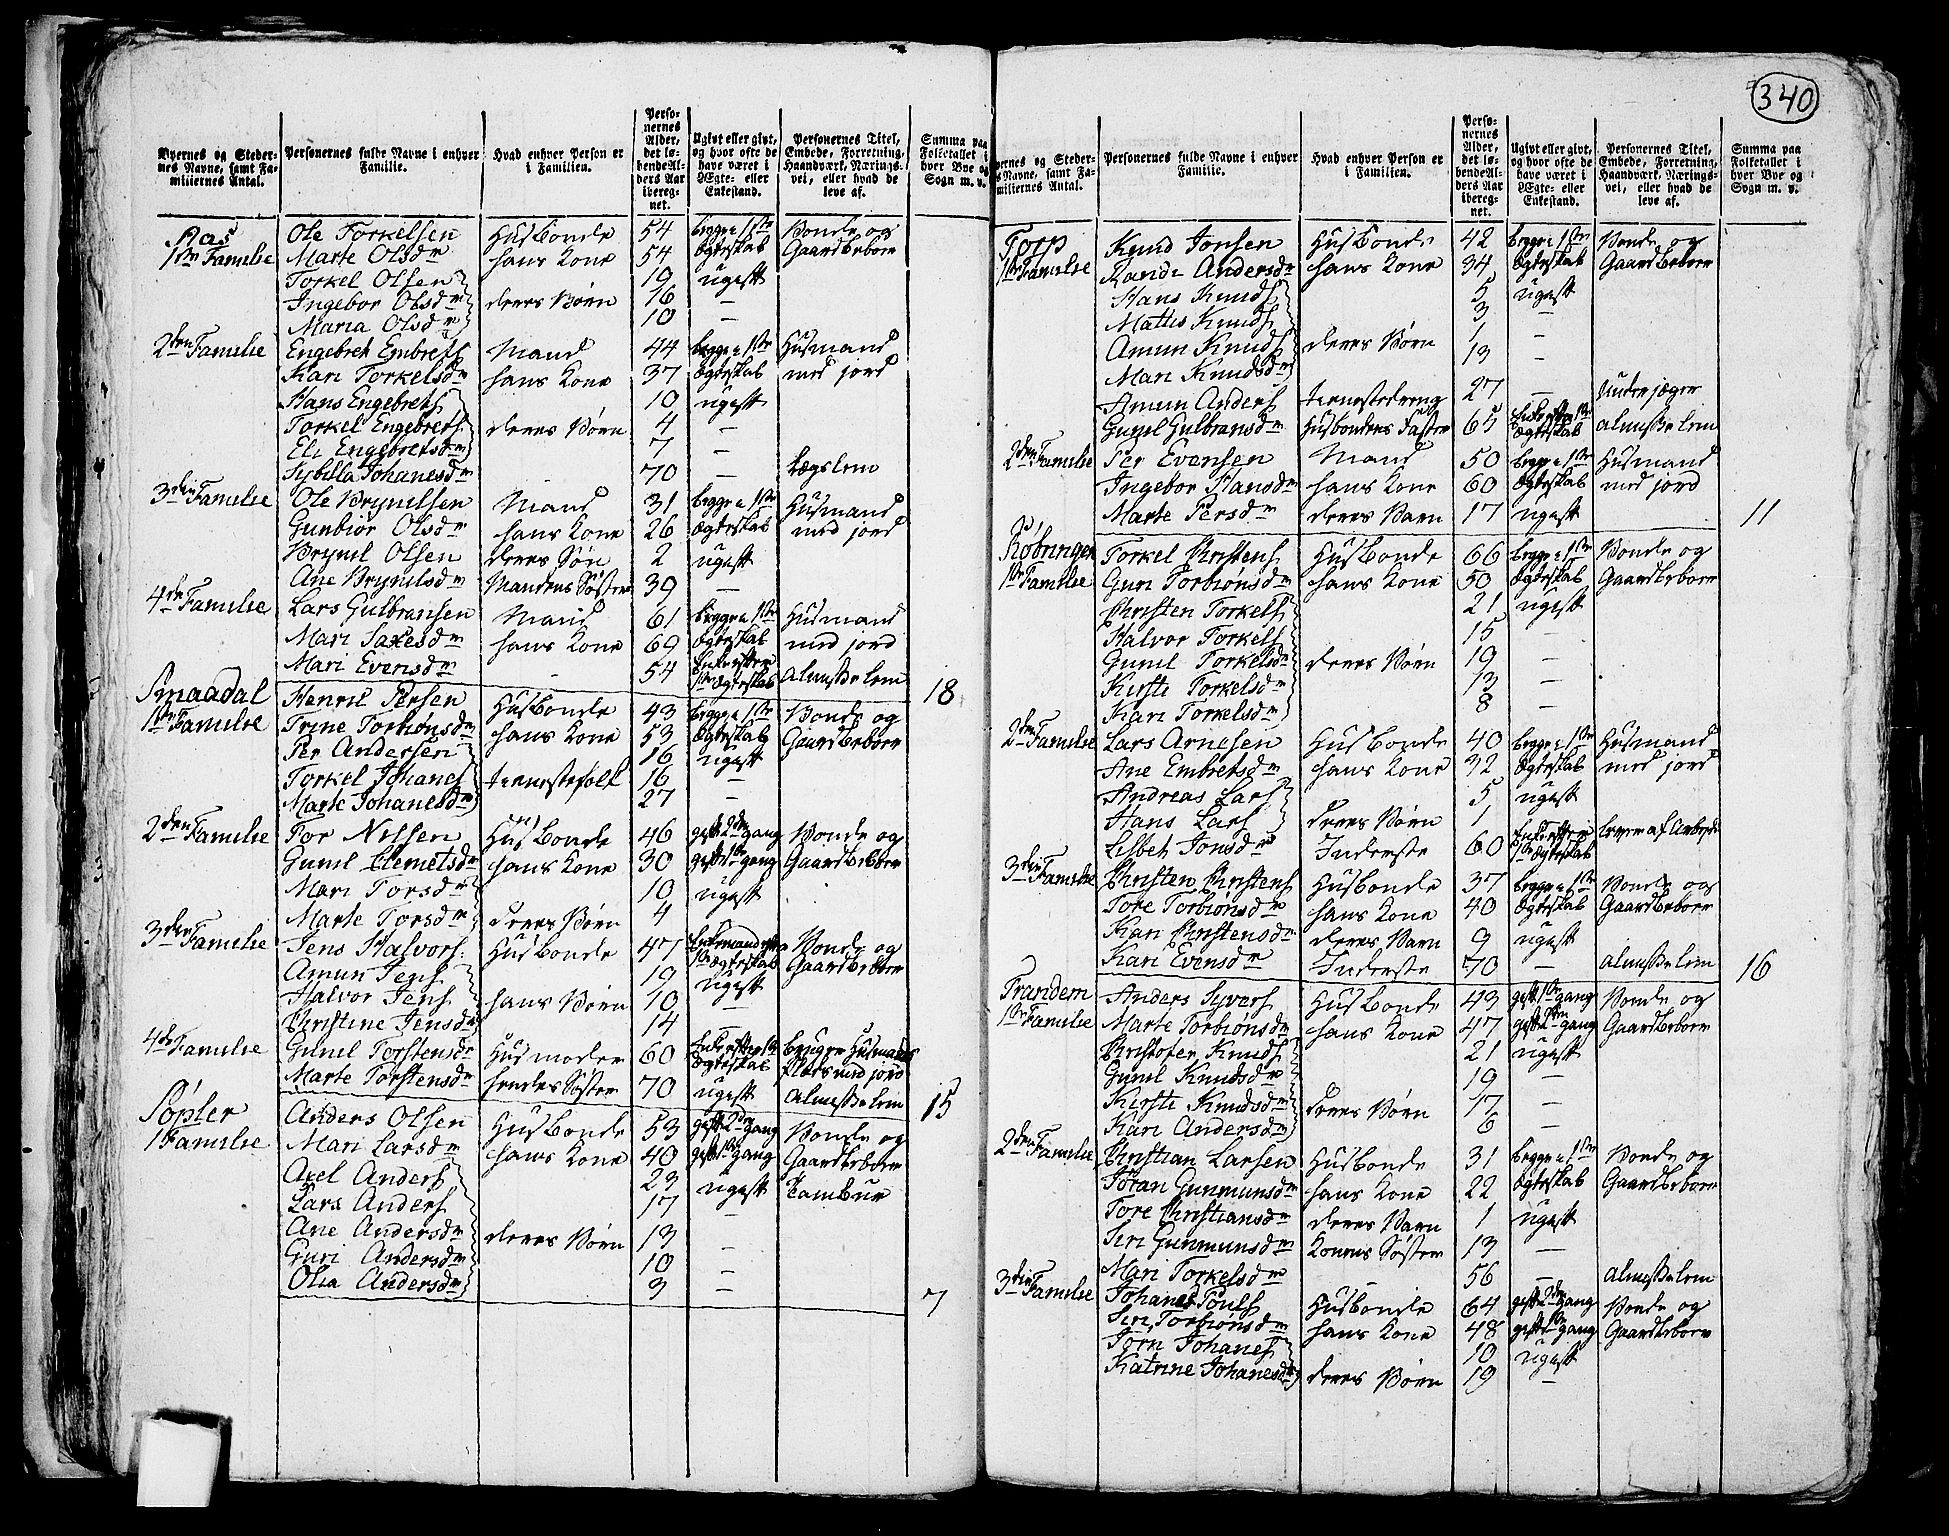 340
Byernes og Steder-
nes Navne, samt Fa-
miliernes Antal.
Personernes fulde Navne i enhver
Familie.
Hvad enhver Person er
i Familien.
Perso-
nernes
Alder,
det lø-
bende Al-
ders Aar
iberegn-
net.
Ugivt eller givt,
og hvor ofte de
have været i
Ægte- eller
Enkestand.
Personernes Titel,
Embede, Forretning,
Haandværk, Nærings-
vei, eller hvad de
leve af.
Summa paa
Folketallet i
hver Bye og
Sogn m. v.
Aas Ole Torkelsen HusBonde 54 begge 1ste Bonde og
1ste Familie Marte Olsdr hans Kone 54 Ægteskab Gaardbeboer
Torkel Olsen 19 ugift
Ingebor Olsdr deres Børn 16 —
Maria Olsdr 10 —
2den Familie Engebret Embrets Mand 44 begge 1ste Husmand
Kari Torkelsdr hans Kone 37 Ægteskab med jord
Hans Engebrets 10 ugift
Torkel Engebrets deres Børn 4 —
Eli Engebretsdr 7 —
Sybilla Johanesdr 70 — Lægslem
3den Familie Ole Brynilsen Mand 31 begge 1ste Husmand
Gunbiør Olsdr hans Kone 26 Ægteskab med jord
Brynil Olsen deres Søn 2 ugift
Ane Brynilsdr Mandens Søster 39 —
4de Familie Lars Gulbransen Mand 61 begge 1ste Husmand
Mari Saxesdr hans Kone 69 Ægteskab med jord
Mari Evensdr - 54 Enke efter 1ste Ægteskab Almisselem 18
Smaadal Henril Persen HusBonde 43 begge 1ste Bonde og
1ste Familie Trine Torbiønsdr hans Kone 53 Ægteskab Gaardbeboer
Per Andersen 16 ugift
Torkel Johanes tienestefolk 16 —
Marte Johanesdr 27 —
2den Familie Tor Nilsen HusBonde 46 gift 2den gang Bonde og
Gunil Clemetsdr hans Kone 30 gift 1ste gang Gaardbeboer
Mari Torsdr 10 ugift
Marte Torsdr deres Børn 4
3den Familie Jens Halvors. HusBonde 47 Enkemand efter 1ste Ægteskab Bonde og Gaardbeboer
Amun Jens 19 ugift
Halvor Jens hans Børn 10
Christine Jensdr 14 —
4de Familie Gunil Torstensdr Husmoder 60 Enke efter 1ste Ægteskab bruger Husmands plads med jord
Marte Torstensdr hendes Søster 70 ugift Almisselem 15
Søpler Anders Olsen HusBonde 53 gift 2den gang Bonde og
1 Familie Mari Larsdr hans Kone 40 gift 1ste gang Gaardbeboer
Axel Anders 23 ugift Tambur
Lars Anders 17 —
Ane Andersdr deres Børn 13 —
Guri Andersdr 10 —
Olia Andersdr 3 — 7
Byernes og Steder-
nes Navne, samt Fa-
miliernes Antal.
Personernes fulde Navne i enhver
Familie.
Hvad enhver Person er
i Familien.
Perso-
nernes
Alder,
det lø-
bende Al-
ders Aar
iberegn-
net.
Ugivt eller givt,
og hvor ofte de
have været i
Ægte- eller
Enkestand.
Personernes Titel,
Embede, Forretning,
Haandværk, Nærings-
vei, eller hvad de
leve af.
Summa paa
Folketallet i
hver Bye og
Sogn m. v.
Torp Knud Jonsen HusBonde 42 begge 1ste Bonde og
1ste Familie Randi Andersdr hans Kone 34 Ægteskab Gaardbeboer
Hans Knuds 5 ugift
Mattis Knuds 3
Amun Knuds deres Børn 1 —
Mari Knudsdr 13 —
Amun Anders tienestedreng 27 — Underjæger
Gunil Gulbransdr Husbondens Faster 65 Enke efter 1ste Ægteskab Almisselem
2den Familie Per Evensen Mand 50 begge 1ste Husmand
Ingebor Hansdr hans Kone 60 Ægteskab med jord
Marte Persdr deres Barn 17 ugift 11
Røbringen Torkel Christens HusBonde 66 begge 1ste Bonde og
1ste Familie Guri Torbiønsdr hans Kone 50 Ægteskab Gaardbeboer
Christen Torkels 21 ugift
Halvor Torkels 15 —
Gunil Torkelsdr deres Børn 19 —
Kirsti Torkelsdr 13 —
Kari Torkelsdr 8 —
2den Familie Lars Arnesen HusBonde 40 begge 1ste Husmand
Ane Embretsdr hans Kone 32 Ægteskab med jord
Andreas Lars 5 ugift
Hans Lars deres Børn 1
Lisbeh Jonsdr Inderste 60 Enke efter 1ste Ægteskab lever af Arbejde
3den Familie Christen Christens HusBonde 37 begge 1ste Bonde og
Tore Torbiønsdr hans Kone 40 Ægteskab Gaardbeboer
Kari Christensdr deres Barn 9 ugift
Kari Evensdr Inderste 70 — Almisselem 16
Trandem Anders Syvers HusBonde 43 gift 1ste gang Bonde og
1ste Familie Marte Torbiønsdr hans Kone 47 gift 2den gang Gaardbeboer
Christofer Knuds 21 ugift
Gunil Knudsdr 19 —
Kirsti Knudsdr deres Børn 17 —
Kari Andersdr 6 —
2den Familie Christian Larsen HusBonde 31 begge 1ste Bonde og
Jøran Gunmunsdr hans Kone 22 Ægteskab Gaardbeboer
Tore Christiansdr deres Barn 1 ugift
Siri Gunmunsdr Konens Søster 13 —
Mari Torkelsdr 56 — Almisselem
3die Familie Johanes Pouls HusBonde 64 gift 2den gang Bonde og
Siri Torbiønsdr hans Kone 48 gift 1ste gang Gaardbeboer
Jørn Johanes 10 ugift
Katrine Johanesdr deres Børn 19 —